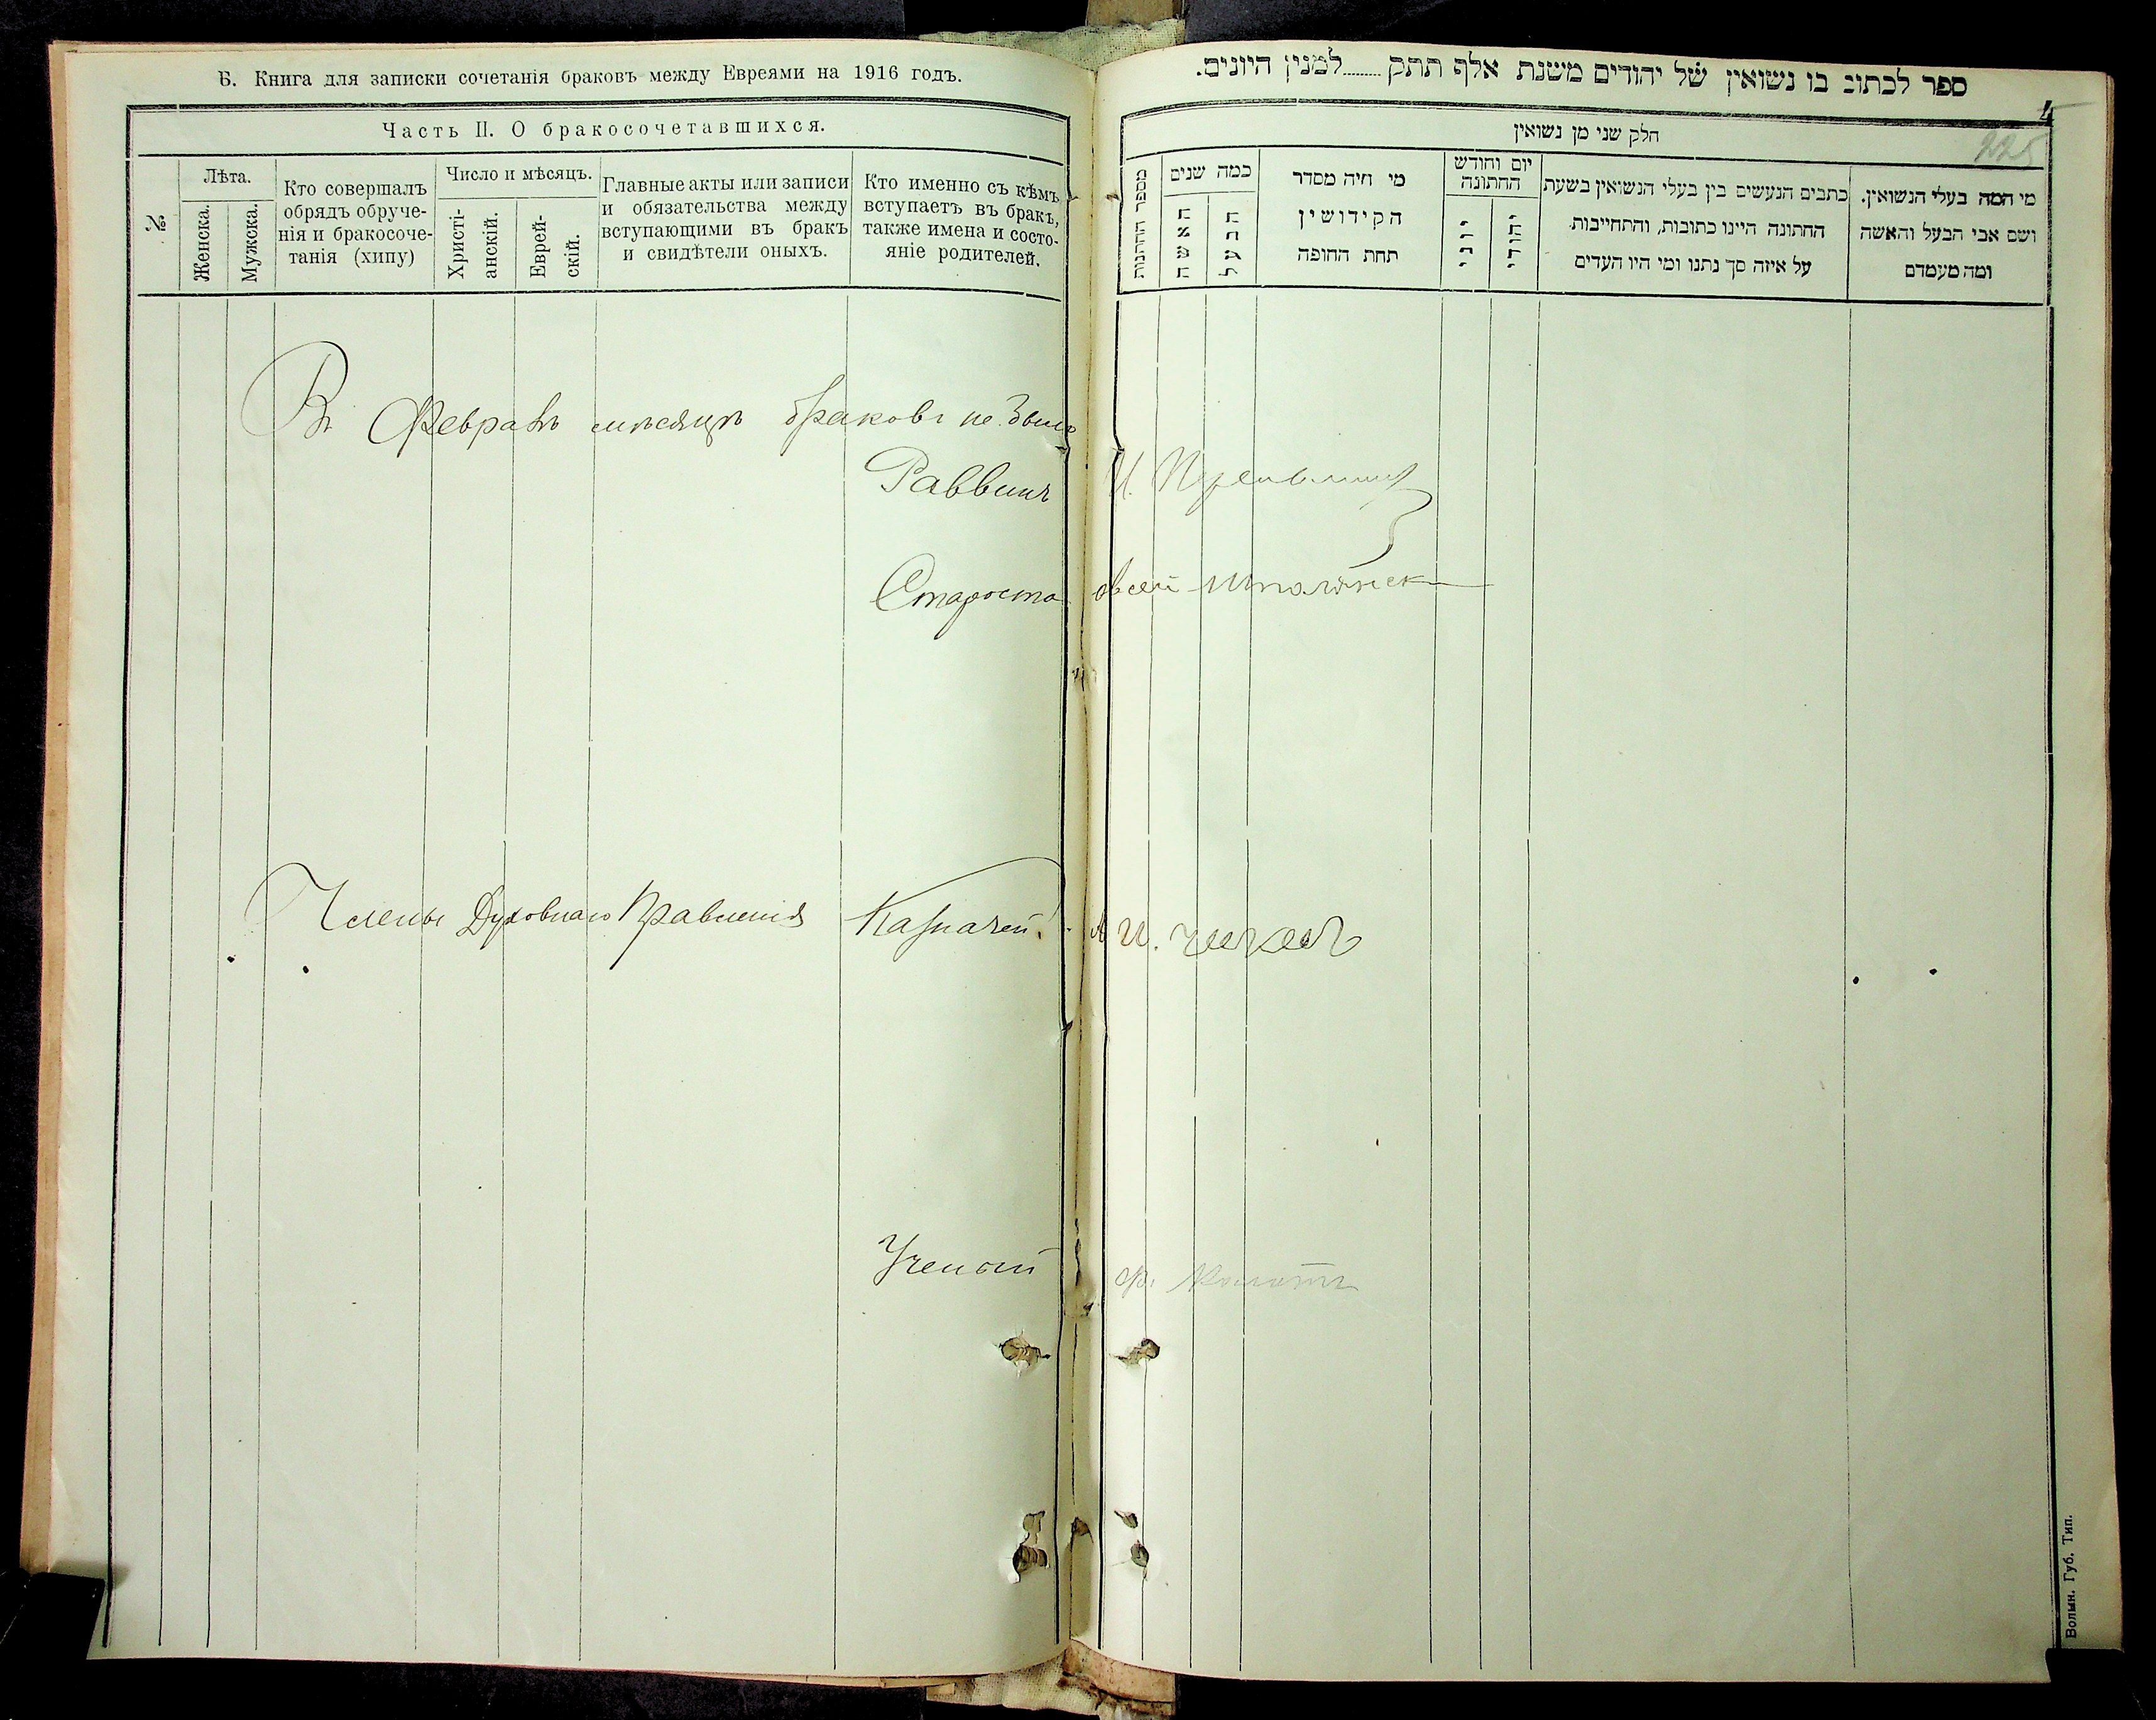 Б. Книга для записки сочетанія браковъ между Евреями на 1916 годъ.
Часть II. О бракосочетавшихся.
№
Лѣта.
Женска.
Мужска.
Кто совершалъ
обрядъ обруче-
нія и бракосоче-
танія (хипу)
Число и мѣсяцъ.
Христі-
анскій.
Еврей-
скій.
Главные акты или записи
и обязательства между
вступающими въ бракъ
и свидѣтели оныхъ.
Кто именно съ кѣмъ
вступаетъ въ бракъ,
также имена и состо-
яніе родителей.
Въ Февралѣ мѣсяцѣ браковъ не было
Раввинъ
Староста
Члены Духовнаго Правленія Казначей
Ученый
ספר לכתוב בו נשואין של יהודים משנת אלף תתק למנין היונים.
4
225
חלק שני מן נשואין
מספר החתונות
כמה שנים
האשה
הבעל
מי היה מסדר
הקידושין
תחת החופה
יום וחודש
החתונה
יוני
יהודי
כתבים הנעשים בין בעלי הנשואין בשעת
החתונה היינו כתובות, והתחייבות
על איזה סך נתנו ומי היו העדים
מי המה בעלי הנשואין.
ושם אבי הבעל והאשה
ומה מעמדם
И.
Овсей Шполянск
И.
Ф.
Волын. Губ. Тип.